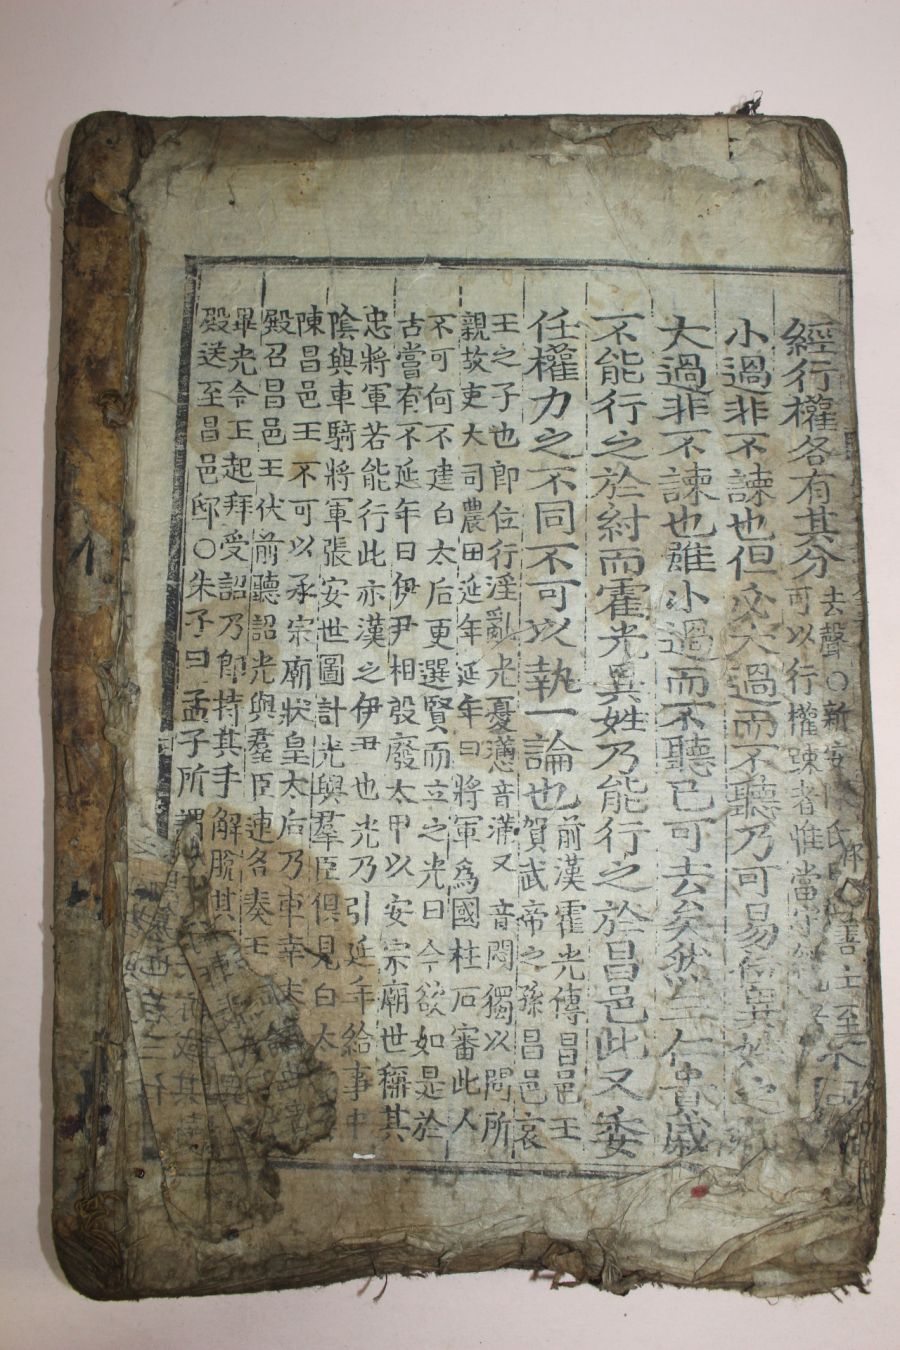 經行權各有其分
去聲○新安陳氏
可以行權踈者惟當守經
小過非不諫也但必大過而不聽乃可易位異姓之
大過非不諫也雖小過而不聽已可去矣然三仁貴戚
不能行之於紂而霍光異姓乃能行之於昌邑此又委
任權力之不同不可以執一論也
前漢霍光傳昌邑王
賀武帝之孫昌邑哀
王之子也卽位行淫亂光憂懣音滿又音悶獨以問所
親故吏大司農田延年延年曰將軍爲國柱石審此人
不可何不建白太后更選賢而立之光曰今欲如是於
古嘗有不延年曰伊尹相殷廢太甲以安宗廟世稱其
忠將軍若能行此亦漢之伊尹也光乃引延年給事中
陰與車騎將軍張安世圖計光與羣臣俱見白太
陳昌邑王不可以承宗廟狀皇太后乃車幸未
殿召昌邑王伏前聽詔光與羣臣連名奏王
畢光令王起拜受詔乃卽持其手解脫其
殿送至昌邑邸○朱子曰孟子所謂